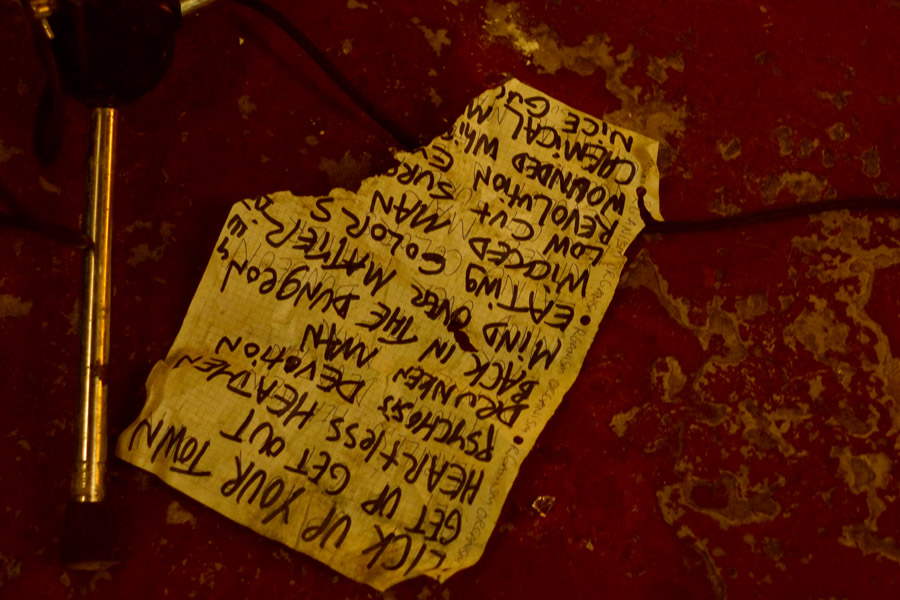 LICK UP YOUR TOWN
GET UP GET OUT
HEARtLess HEATHEN
PSYCHOSiS DEVOtiON
DRUNKEN MAN
BACK IN THE DUNgeoN
MiND OVER MATTER
EATiNg COLORS
WiCKED MAN
LOW CUt SURF
REVOLUtiON
WOUNDED WHi
CHEMiCAL M
NiCE GU